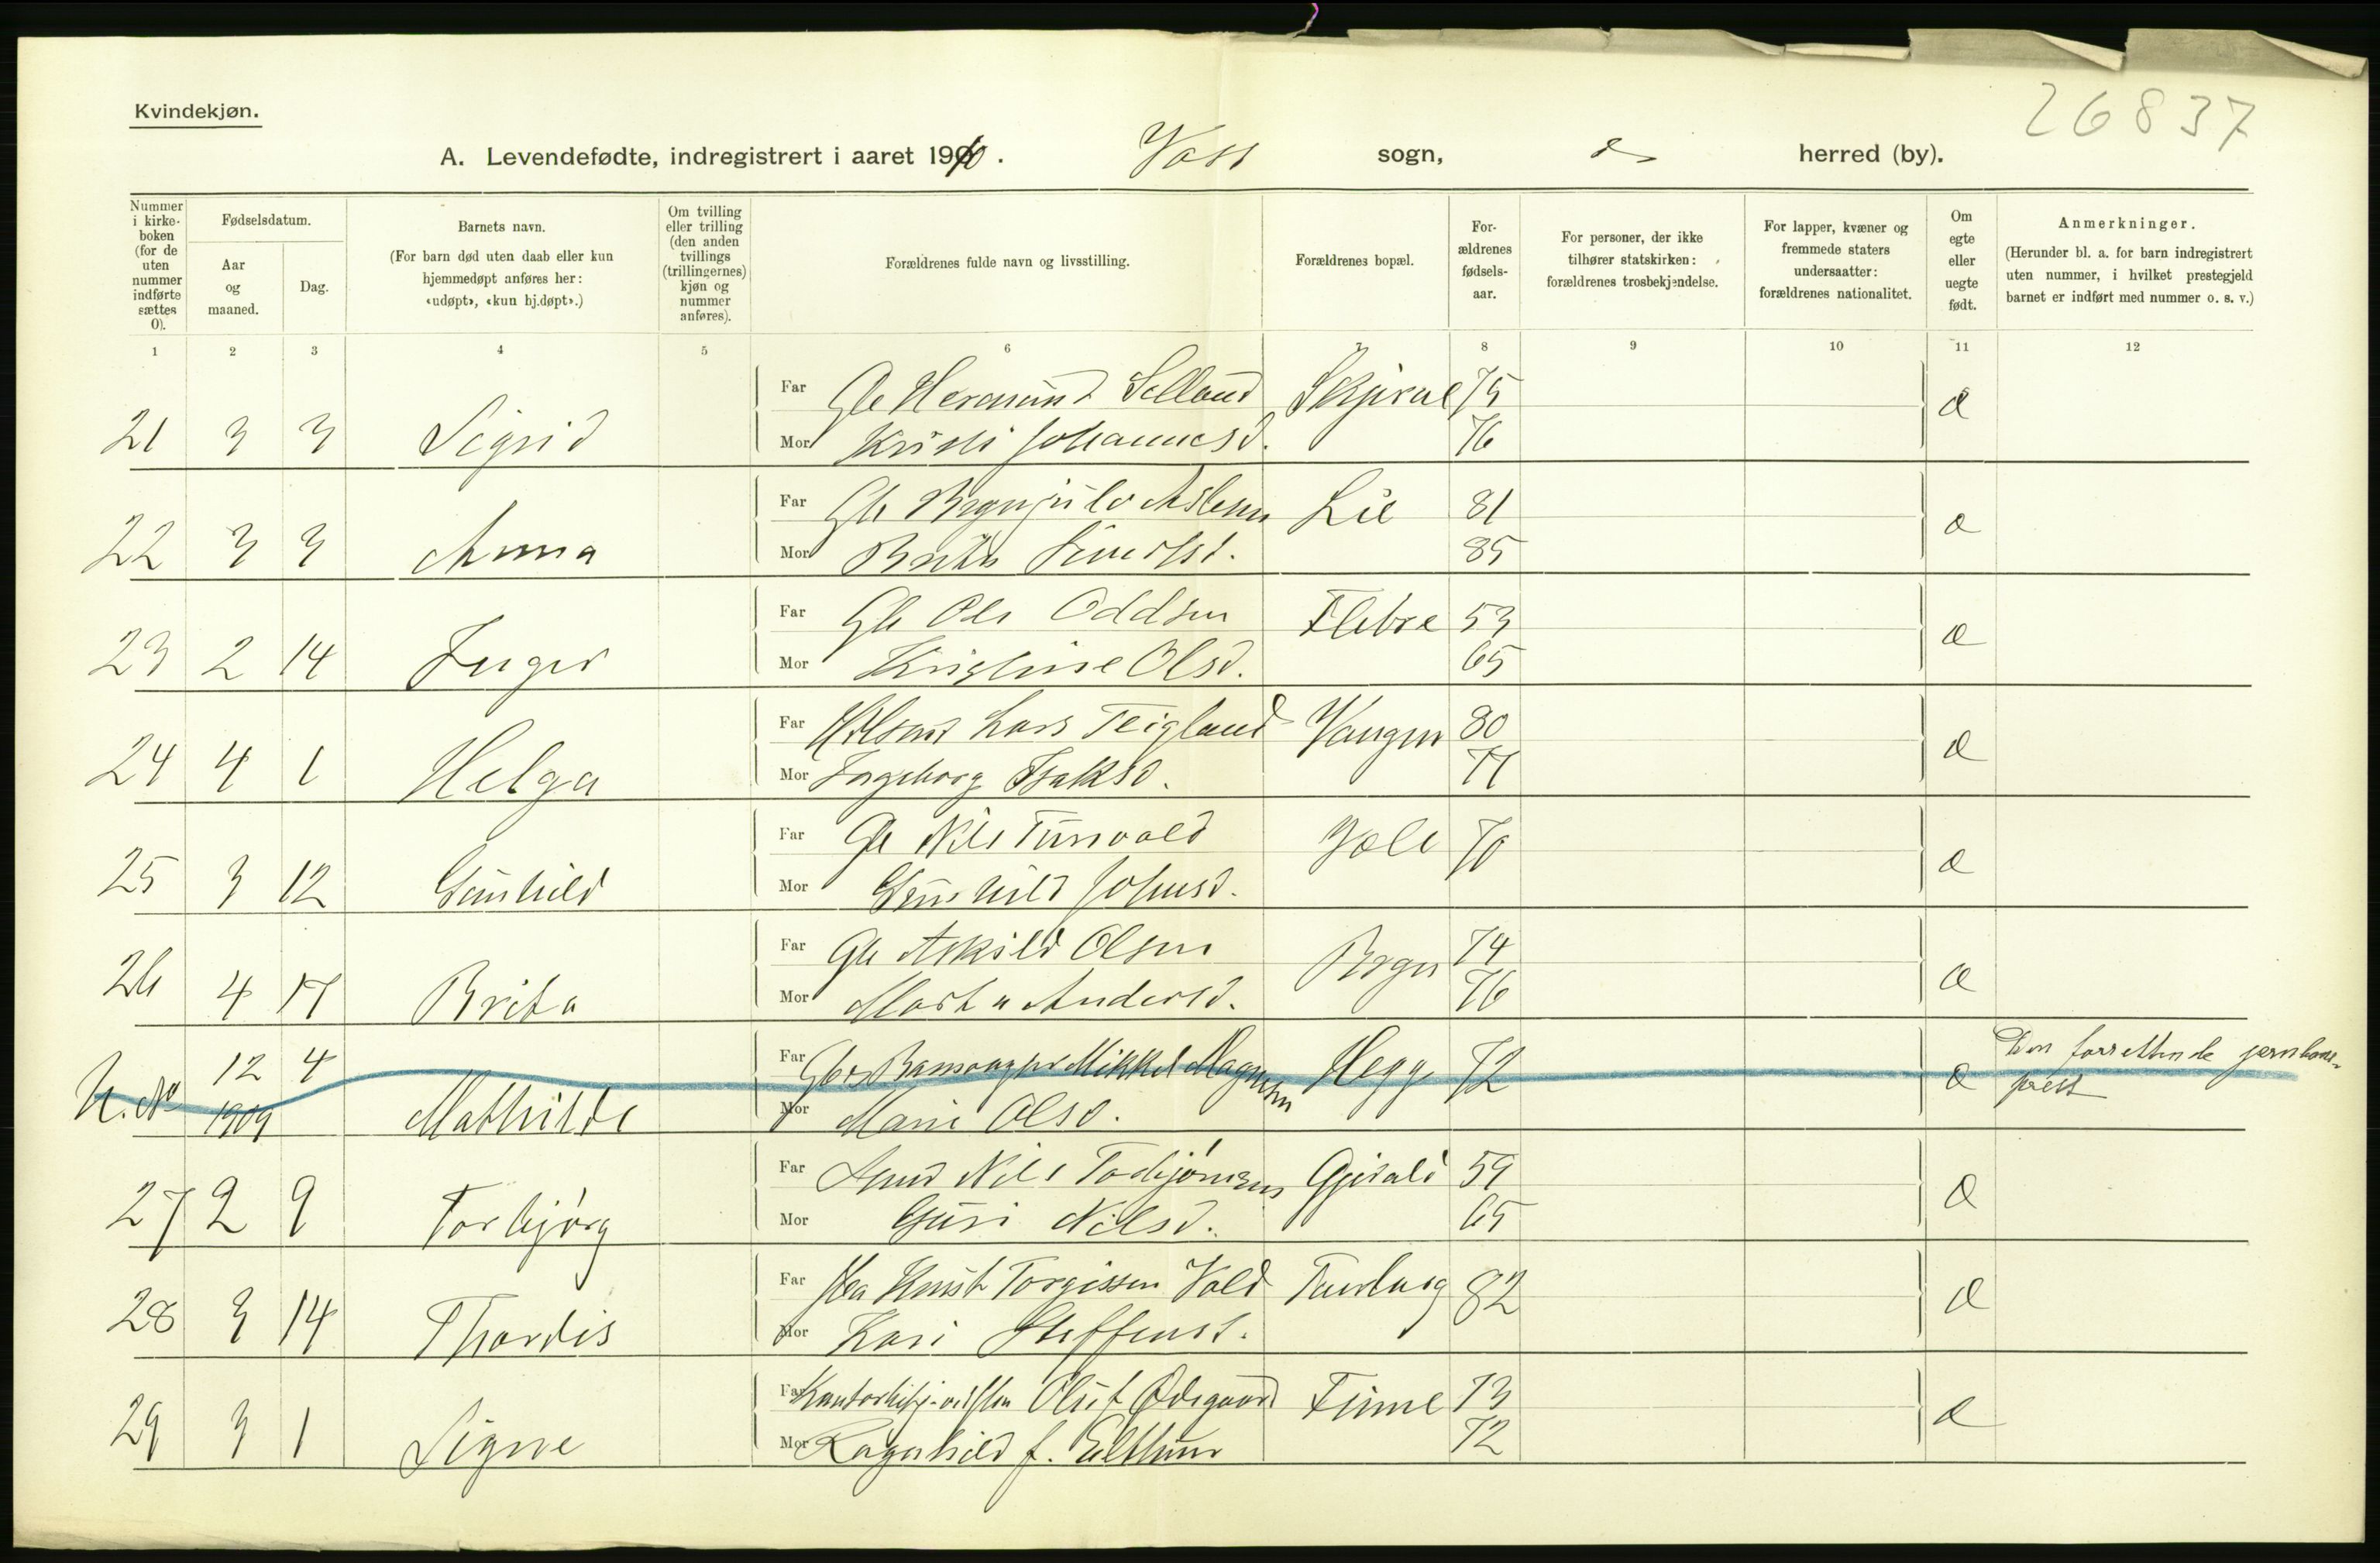 26837
Kvindekjøn.
A. Levendefødte, indregistrert i aaret 1910. Voss sogn, herred (by).
Nummer i kirkeboken (for de uten nummer indførte sættes 0).
Fødselsdatum.
Aar og maaned.
Dag.
Barnets navn.
(For barn død uten daab eller kun hjemmedøpt anføres her: «udøpt», «kun hj.døpt».)
Om tvilling eller trilling (den anden tvillings (trillingernes) kjøn og nummer anføres).
Forældrenes fulde navn og livsstilling.
Forældrenes bopæl.
Forældrenes fødselsaar.
For personer, der ikke tilhører statskirken: forældrenes trosbekjendelse.
For lapper, kvæner og fremmede staters undersaatter: forældrenes nationalitet.
Om egte eller uegte født.
Anmerkninger.
(Herunder bl. a. for barn indregistrert uten nummer, i hvilket prestegjeld barnet er indført med nummer o. s. v.)
1 2 3 4 5 6 7 8 9 10 11 12
Far Gbr Hermund Selland Skjerve 75 æ
21 3 3 Sigrid Mor Kristi Johannesd. 76
Far Gbr Brynjulv Lie 81 æ
22 3 3 Anna Mor Brita 85
Far Gbr Ole Oddsen Flebre 53 æ
23 2 14 Inger Mor Kristine Olsd. 65
Far Lars Teigland Vangen 80 æ
24 4 1 Helga Mor Ingeborg Isaksd. 77
Far Gbr Nils Tunvald 70 æ
25 3 12 Gunhild Mor Gunhild Johnsd.
Far Gbr Askild Olsen 74 æ
26 4 17 Brita Mor Marta Andersd. 76
12 4 Far Mikkel Magnusen Hegg 72 æ Den forrettende jernbaneprest
U. No 1909 Mathilde Mor Marie Olsd.
Far Nils Torbjörnsen 59 æ
27 2 9 Torbjörg Mor Guri Nilsd. 65
Far Knut Torgissen Vold 82 æ
28 3 14 Thordis Mor Kari Steffensd.
Far Oluf Ødegaard Finne 73 æ
29 3 1 Signe Mor Ragnhild f. 72